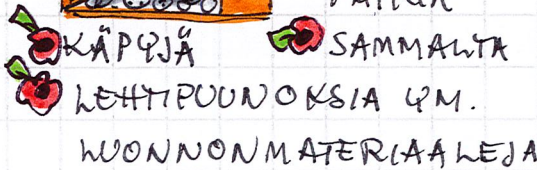 KÄPYJÄ SAMMALTA
LEHTIPUUNOKSIA YM.
LUONNONMATERIAALEJA